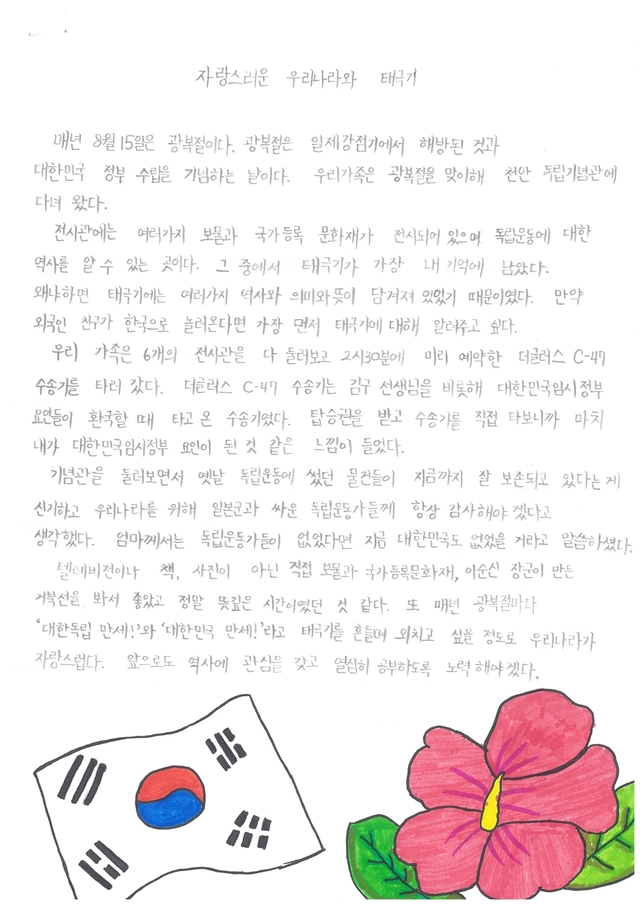 자랑스러운 우리나라와 태극기
매년 8월 15일은 광복절이다. 광복절은 일제강점기에서 해방된 것과
대한민국 정부 수립을 기념하는 날이다. 우리가족은 광복절을 맞이해 천안 독립기념관에
다녀 왔다.
전시관에는 여러가지 보물과 국가등록 문화재가 전시되어 있으며 독립운동에 대한
역사를 알 수 있는 곳이다. 그 중에서 태극기가 가장 내 기억에 남았다.
왜냐하면 태극기에는 여러가지 역사와 의미와 뜻이 담겨져 있었기 때문이였다. 만약
외국인 친구가 한국으로 놀러온다면 가장 먼저 태극기에 대해 알려주고 싶다.
우리 가족은 6개의 전시관을 다 둘러보고 2시30분에 미리 예약한 더글러스 C-47
수송기를 타러 갔다. 더글러스 C-47 수송기는 김구 선생님을 비롯해 대한민국임시정부
요인들이 환국할 때 타고 온 수송기였다. 탑승권을 받고 수송기를 직접 타보니까 마치
내가 대한민국임시정부 요인이 된 것 같은 느낌이 들었다.
기념관을 둘러보면서 옛날 독립운동에 썼던 물건들이 지금까지 잘 보존되고 있다는게
신기하고 우리나라를 위해 일본군과 싸운 독립운동가들께 항상 감사해야겠다고
생각했다. 엄마께서는 독립운동가들이 없었다면 지금 대한민국도 없었을 거라고 말씀하셨다.
텔레비전이나 책, 사진이 아닌 직접 보물과 국가등록문화재, 이순신 장군이 만든
거북선을 봐서 좋았고 정말 뜻깊은 시간이였던 것 같다. 또 매년 광복절마다
'대한독립 만세!'와 '대한민국 만세!'라고 태극기를 흔들며 외치고 싶을 정도로 우리나라가
자랑스럽다. 앞으로도 역사에 관심을 갖고 열심히 공부하도록 노력해야겠다.